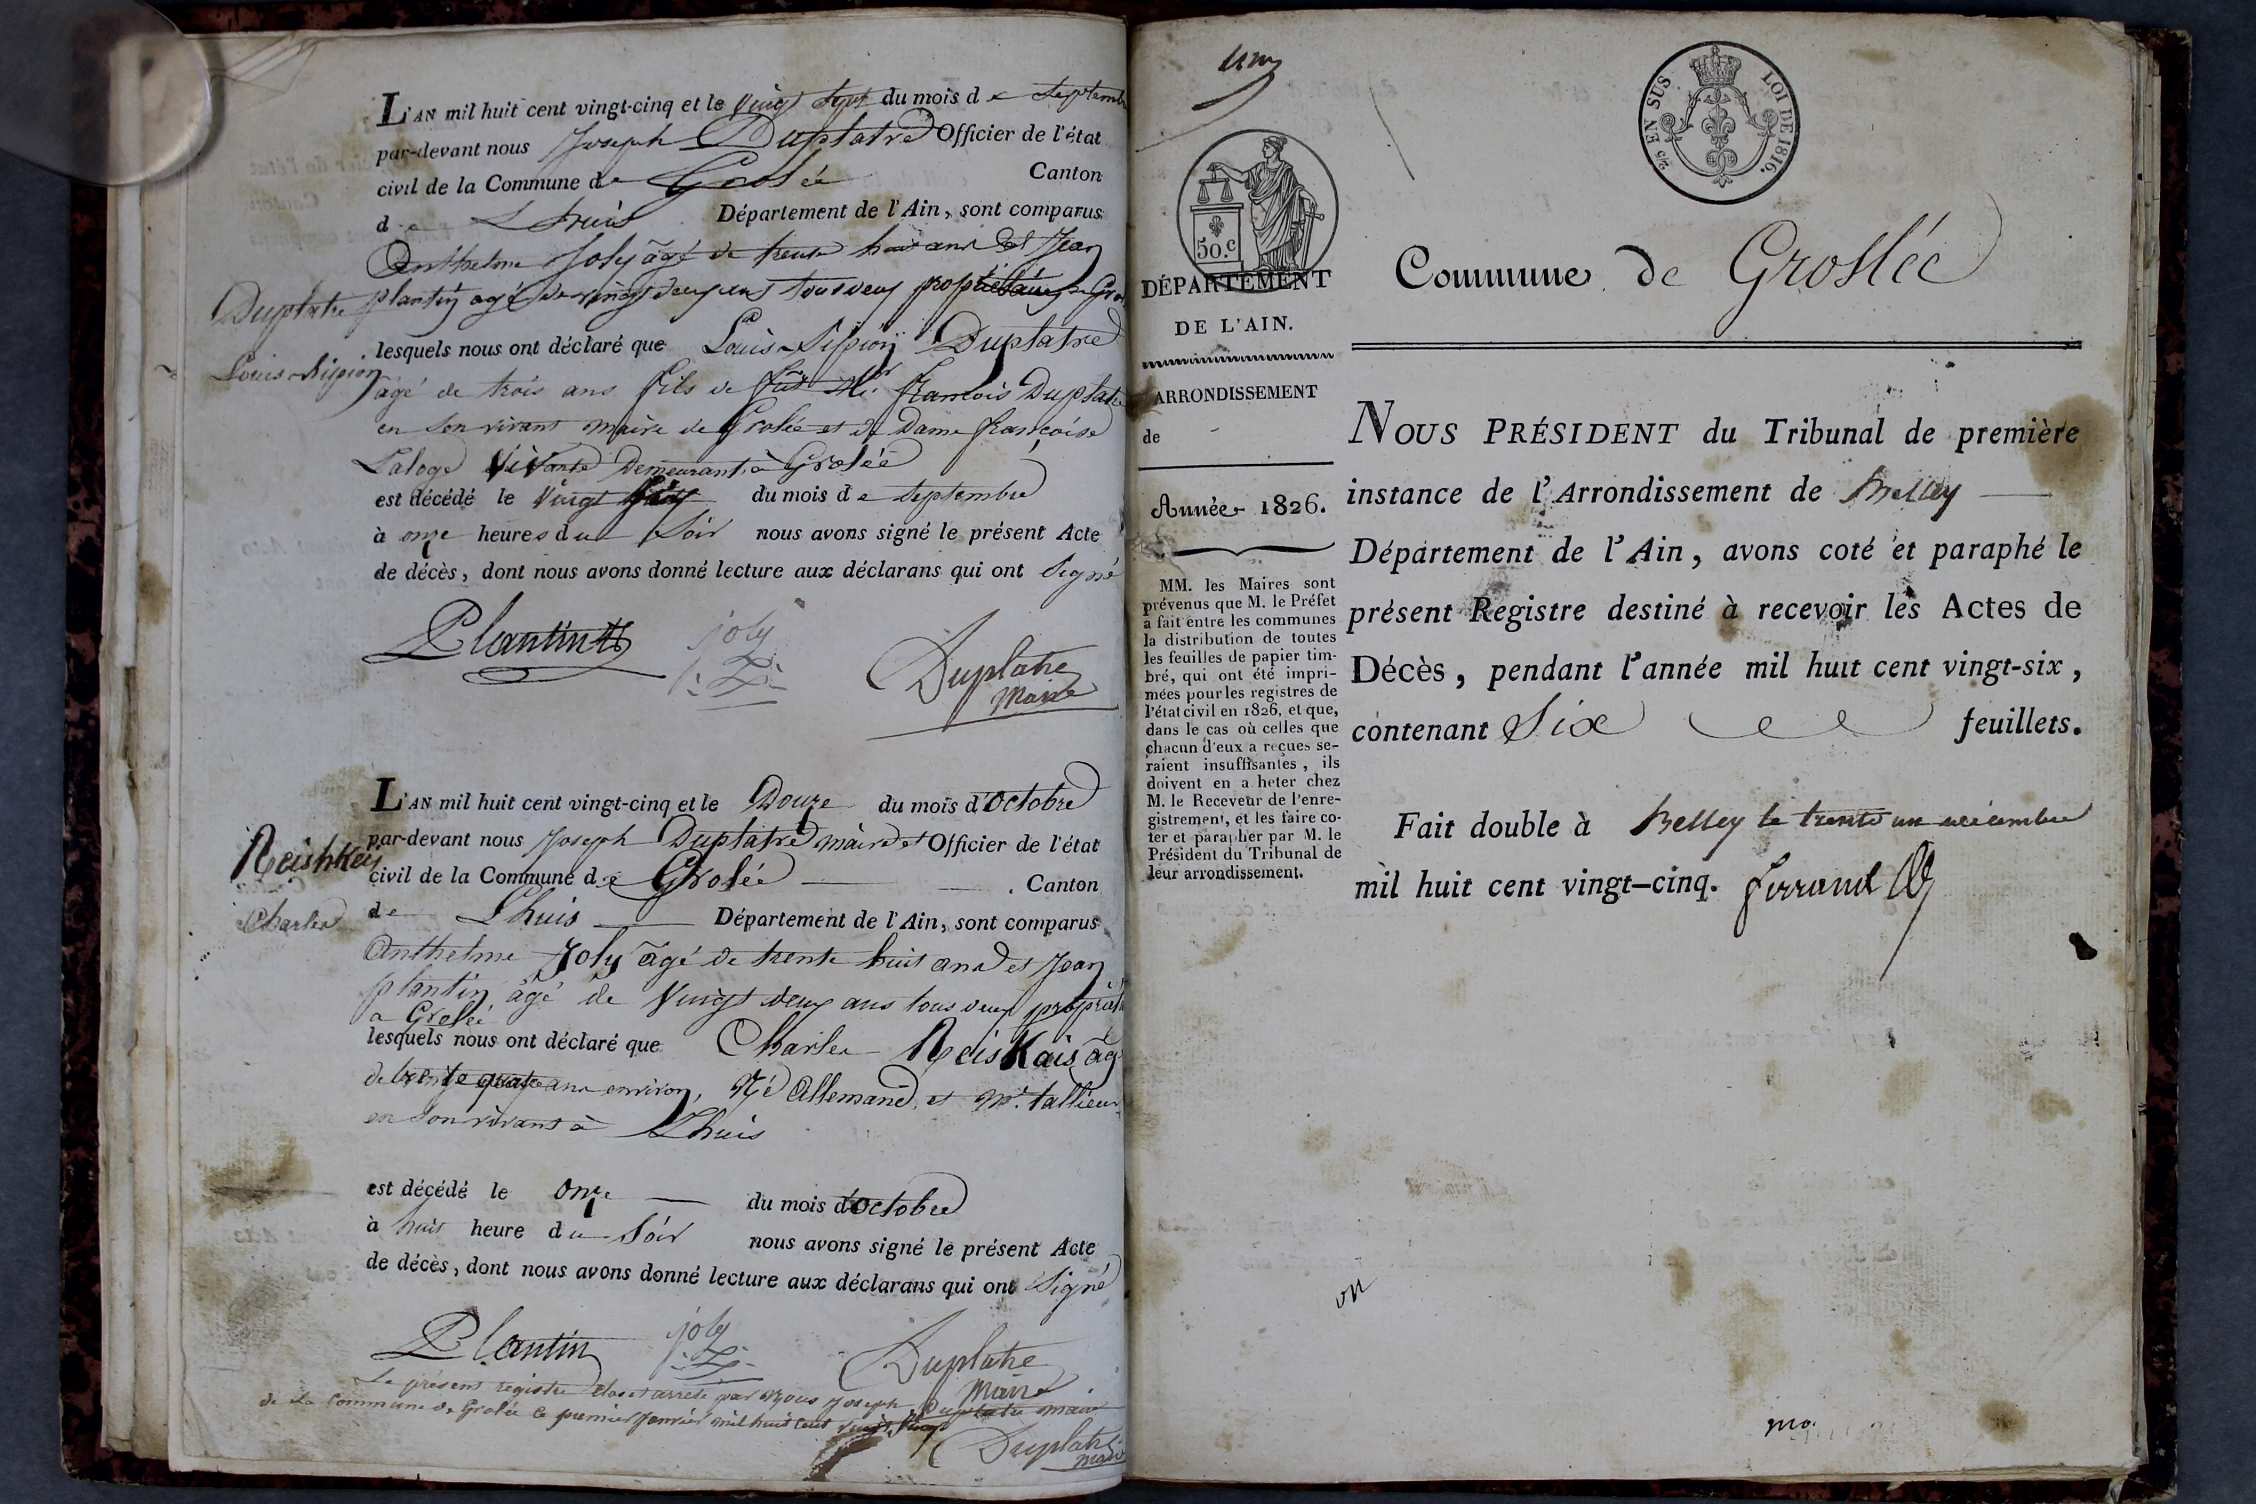 L'AN mil huit cent vingt-cinq et le vingt sept du mois de septembre
par-devant nous Joseph Duplatre Officier de l'état
civil de la Commune de Grolée Canton
de Lhuis Département de l'Ain, sont comparus
Anthelme Joly âgé de trente huit ans et Jean
plantin agé de vingt deux ans tous deux propriétaires a Gro
Duplatre
lesquels nous ont déclaré que Louis Sipion Duplatre
Louis Sipion
âgé de trois ans fils de François Duplatre
en son vivant maire de Grolée et de Dame françoise
Laloge vivante Demeurant à Grolée
est décédé le vingt du mois de septembre
à onze heures du soir nous avons signé le présent Acte
de décès, dont nous avons donné lecture aux déclarans qui ont signé
Plantin
joly
Duplatre
maire
L'AN mil huit cent vingt-cinq et le Douze du mois d'octobre
par-devant nous Joseph Duplatre maire et Officier de l'état
Reishkeis
civil de la Commune de Grolée Canton
Charles
de Lhuis Département de l'Ain, sont comparus
anthelme Joly âgé de trente huit ans et Jean
plantin âgé de vingt deux ans tous deux propriét
a Grolée
lesquels nous ont déclaré que Charles Reiskais âgé
de trente quatre ans environ, Né allemand, et Mr. tallieur
en son vivant à Lhuis
est décédé le onze du mois d'octobre
à huit heure du soir nous avons signé le présent Acte
de décès, dont nous avons donné lecture aux déclarans qui ont signé
Plantin
joly
Duplatre
maire
Le présent registre clos et arrêté par Nous Joseph Duplatre maire
de la Commune de Grolée le premier janvier mil huit cent vingt
Duplatre
maire
un
25 EN SUS
LOI DE 1816.
50.c
DÉPARTEMENT
DE L'AIN.
ARRONDISSEMENT
de
Année 1826.
MM. les Maires sont
prévenus que M. le Préfet
a fait entre les communes
la distribution de toutes
les feuilles de papier tim-
bré, qui ont été impri-
mées pour les registres de
l'état civil en 1826, et que,
dans le cas où celles que
chacun d'eux a reçues se-
raient insuffisantes, ils
doivent en a heter chez
M. le Receveur de l'enre-
gistrement, et les faire co-
ter et parapher par M. le
Président du Tribunal de
leur arrondissement.
Commune de Groslée
NOUS PRÉSIDENT du Tribunal de première
instance de l'Arrondissement de Belley
Département de l'Ain, avons coté et paraphé le
présent Registre destiné à recevoir les Actes de
Décès, pendant l'année mil huit cent vingt-six,
contenant Six feuillets.
Fait double à Belley le trente un décembre
mil huit cent vingt-cinq. ferrand